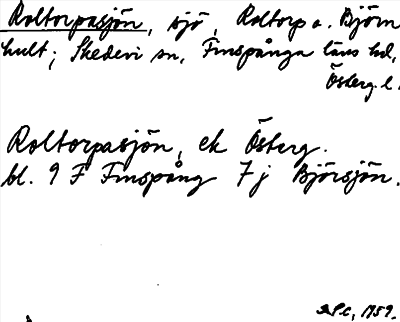 Roltorpasjön, sjö, Roltorp o. Björn
hult, Skedevi sn, Finspånga läns hd,
Österg. l.
Roltorpasjön, ek Österg.
bl. 9 F Finspång 7 j Björsjön.
1959.